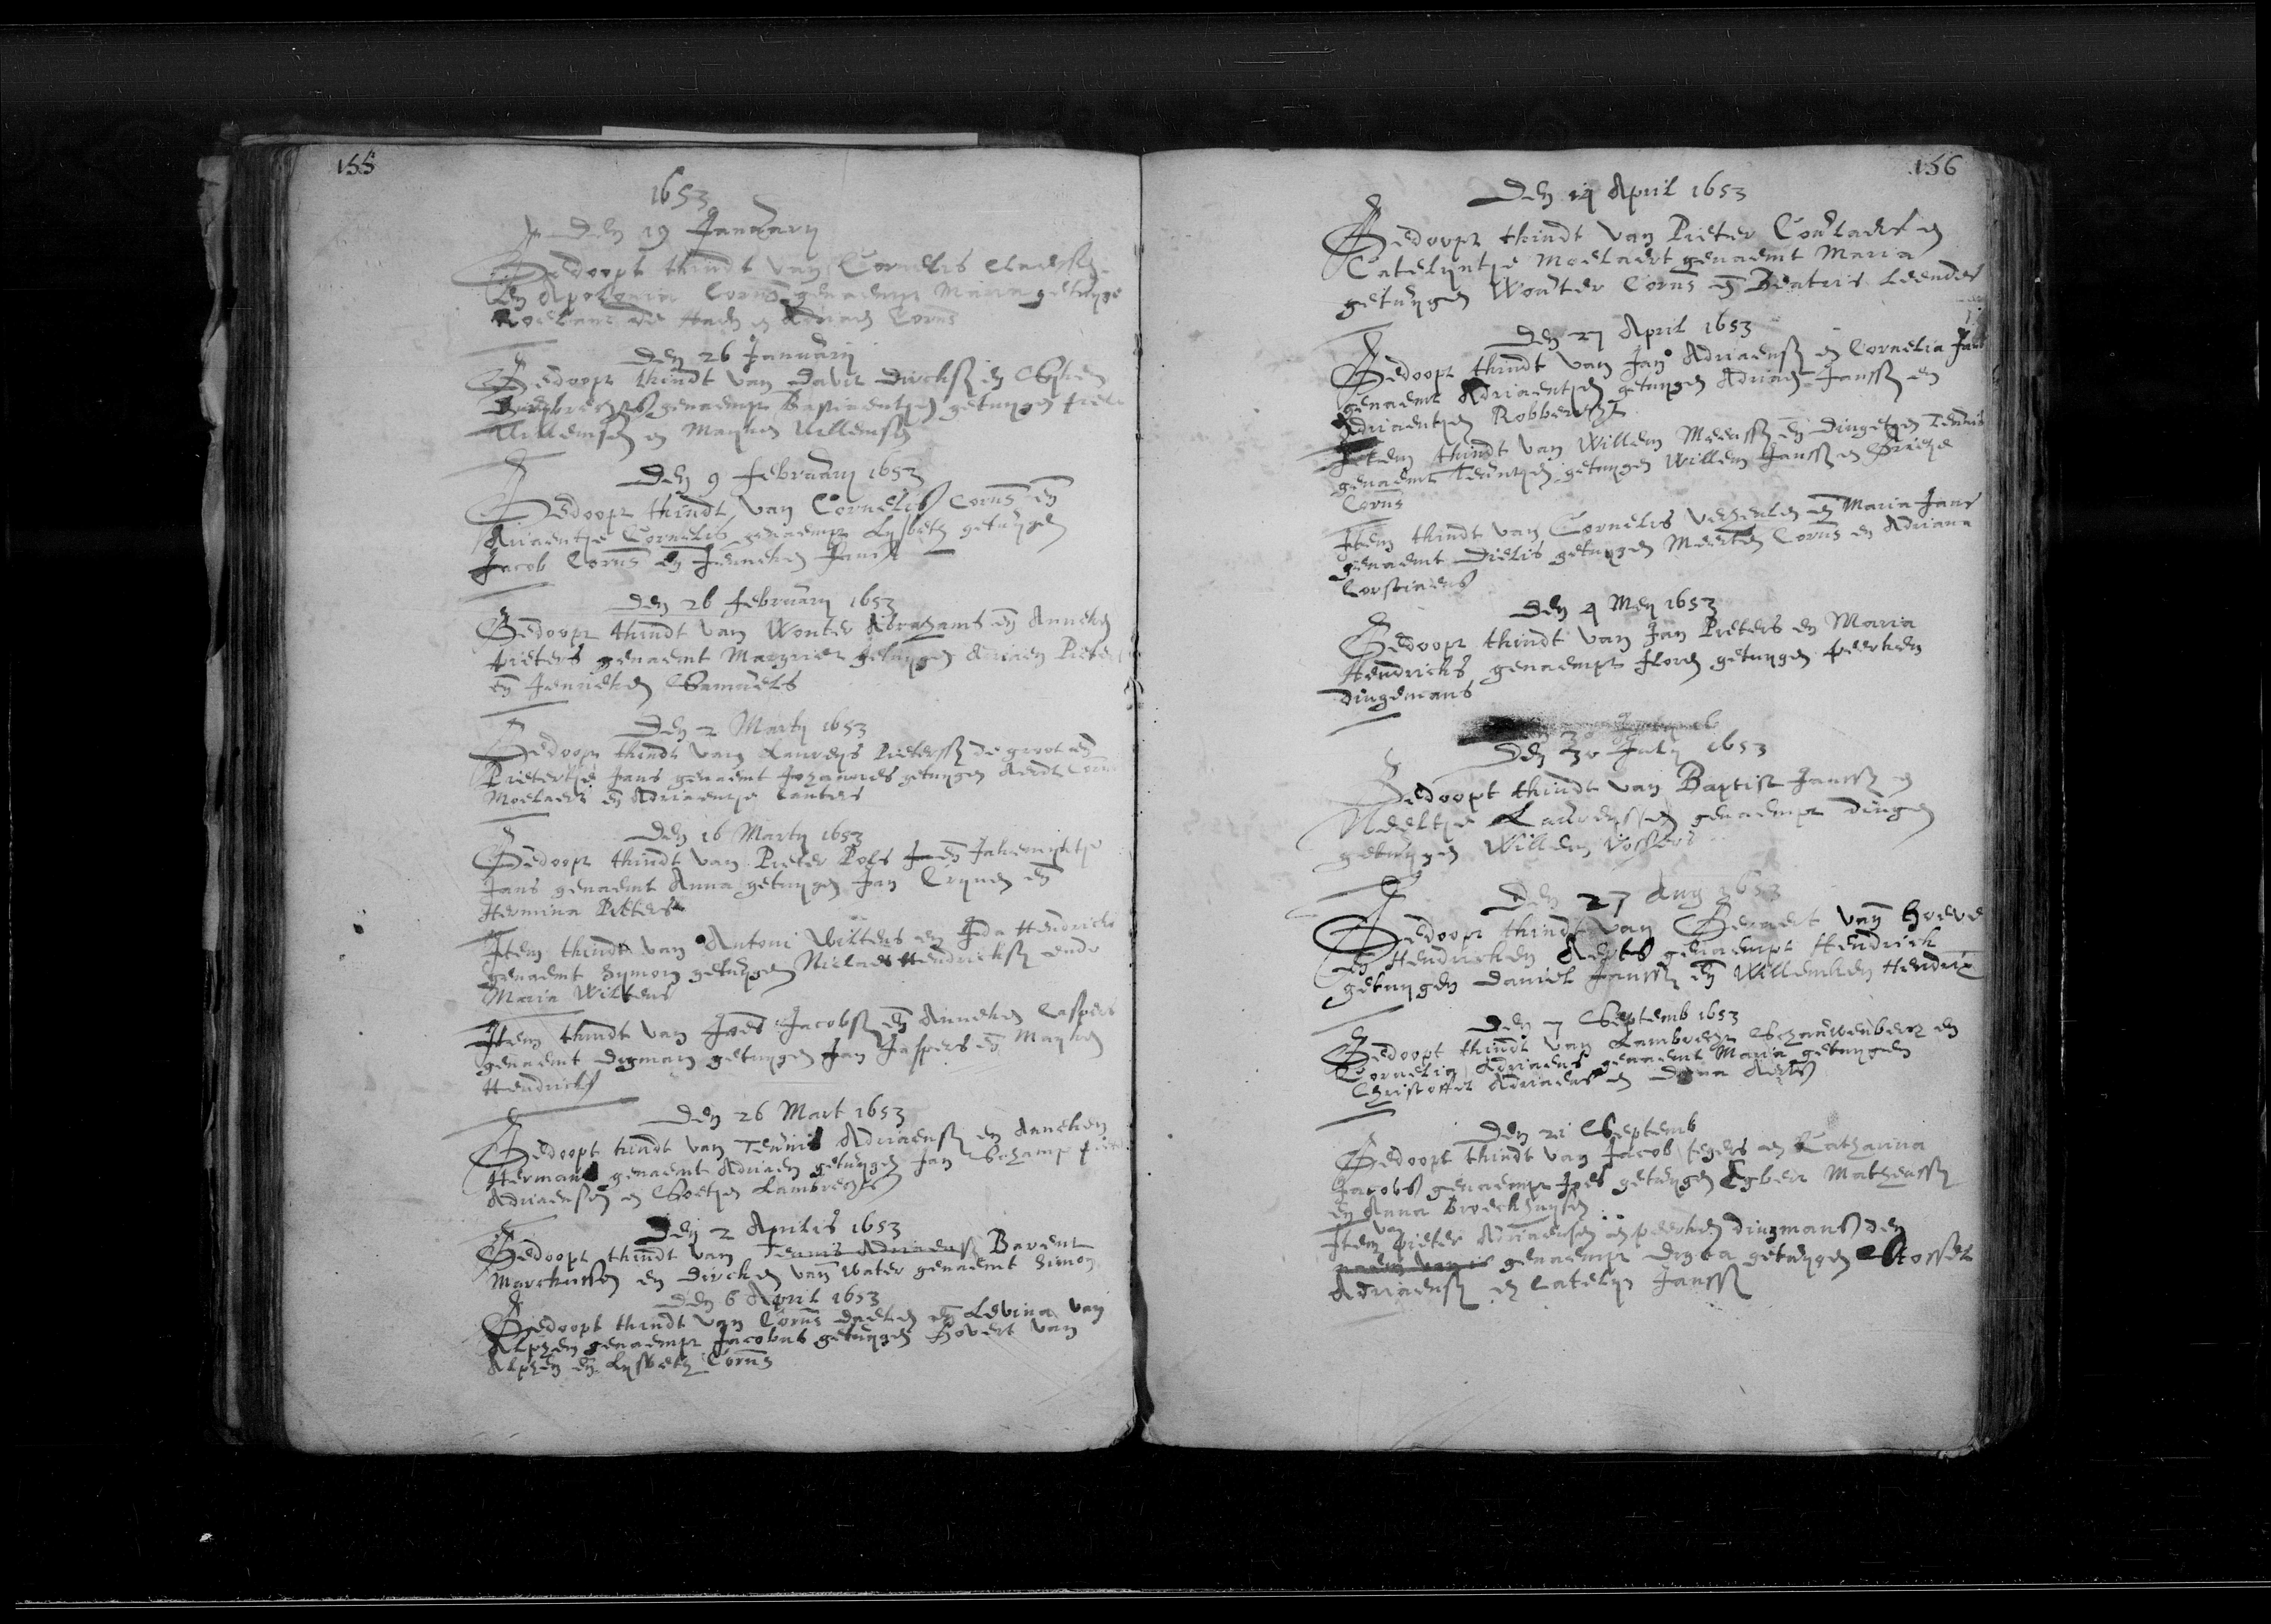 155
1653
Den 19 January
Gedoopt tkindt van Cornelis Claessen
en Apolonia Corns genaempt Maria getuyge
Roelant de Haen en Adriaen Corns
Den 26 January
Gedoopt tkindt van Davit Dircksz en
genaempt Bastiaentjen getuygen
Willemsen en Mayken Willemsen
Den 9 February 1653
Gedoopt tkindt van Cornelis Corns en
Ariaentje Cornelis genaempt Lysbeth getuygen
Jacob Corns en Jenneken Jans
Den 26 February 1653
Gedoopt tkindt van Wouter Abrahams en Anneken
Pieters genaemt Margriet getuygen Ariaen Pieters
en Jenneken Samuels
Den 2 Marty 1653
Gedoopt tkindt van Laureys Pieterssz de groot en
Pietertje Jans genaemt Johannes getuygen Aerdt Corns
Moelaert en Adriaentje Canters
Den 16 Marty 1653
Gedoopt tkindt van Pieter Pols en Jakemyntje
Jans genaemt Anna getuygen Jan Crynen en
Hermina Pieters
Item tkindt van Antoni Willens en Ida Hendricks
genaemt Symon getuygen Niclaes Hendricksz ende
Maria Willens
Item tkindt van Joes Jacobsz en Anneken Caspers
genaemt Digman getuygen Jan Jaspers en Mayken
Hendricks
Den 26 Mart 1653
Gedoopt tindt van Teunis Adriaensz en Anneken
Hermans genaemt Adriaen getuygen Jan Schamp
Adriaensen en Soetjen Lambrechts
Den 2 Aprilis 1653
Gedoopt tkindt van Teunis Adriaensz Barent
Marchussen en Dircken van Water genaemt Simon
Den 6 April 1653
Gedoopt tkindt van Corns Daelen en Levina van
Alphen genaempt Jacobus getuygen Govert van
Alphen en Lysbeth Corns
156
Den 14 April 1653
Gedoopt tkindt van Pieter en
Catelyntje Moelaert genaemt Maria
getuygen Wouter Corns en Beatris Leenders
Den 27 April 1653
Gedoopt tkindt van Jan Adriaensz en Cornelia Jans
genaemt Adriaentjen getuygen Adriaen Janssz en
Adriaentjen Robberecht
Item tkindt van Willem Meeussz en Dingetjen Teunis
genaemt Teuntjen getuygen Willem Janssz en
Corns
Item tkindt van Cornelis en Maria Jans
genaemt Dielis getuygen Meerten Corns en Adriana
Corstiaens
Den 4 Mey 1653
Gedoopt tkindt van Jan Pieters en Maria
Hendricks genaempt Floren getuygen Peerken
Dingemans
Den 30 July 1653
Gedoopt tkindt van Baptist Janssz en
Neeltje Laurenssen genaempt Dingen
getuygen Willem Vossers
Den 27 Aug 1653
Gedoopt tkindt van Geraert van Hoeve
en Hendricken Aerts genaempt Hendrick
getuygen Daniel Janssz en Willemken Hendrix
Den 7 Septemb 1653
Gedoopt tkindt van Lambrecht Schauwenberch en
Cornelia Adriaens genaemt Maria getuygen
Christoffel Adriaens en Aerts
Den 21 Septemb
Gedoopt tkindt van Jacob Segers en Catharina
Jacobs genaempt Joes getuygen Egbert Matheussz
en Anna Broeckhuysen
van
Item Pieter Adriaensen en Peerken Dingmans den
naem van is genaempt Digna getuygen Stoffel
Adriaensz en Catelyn Janssz